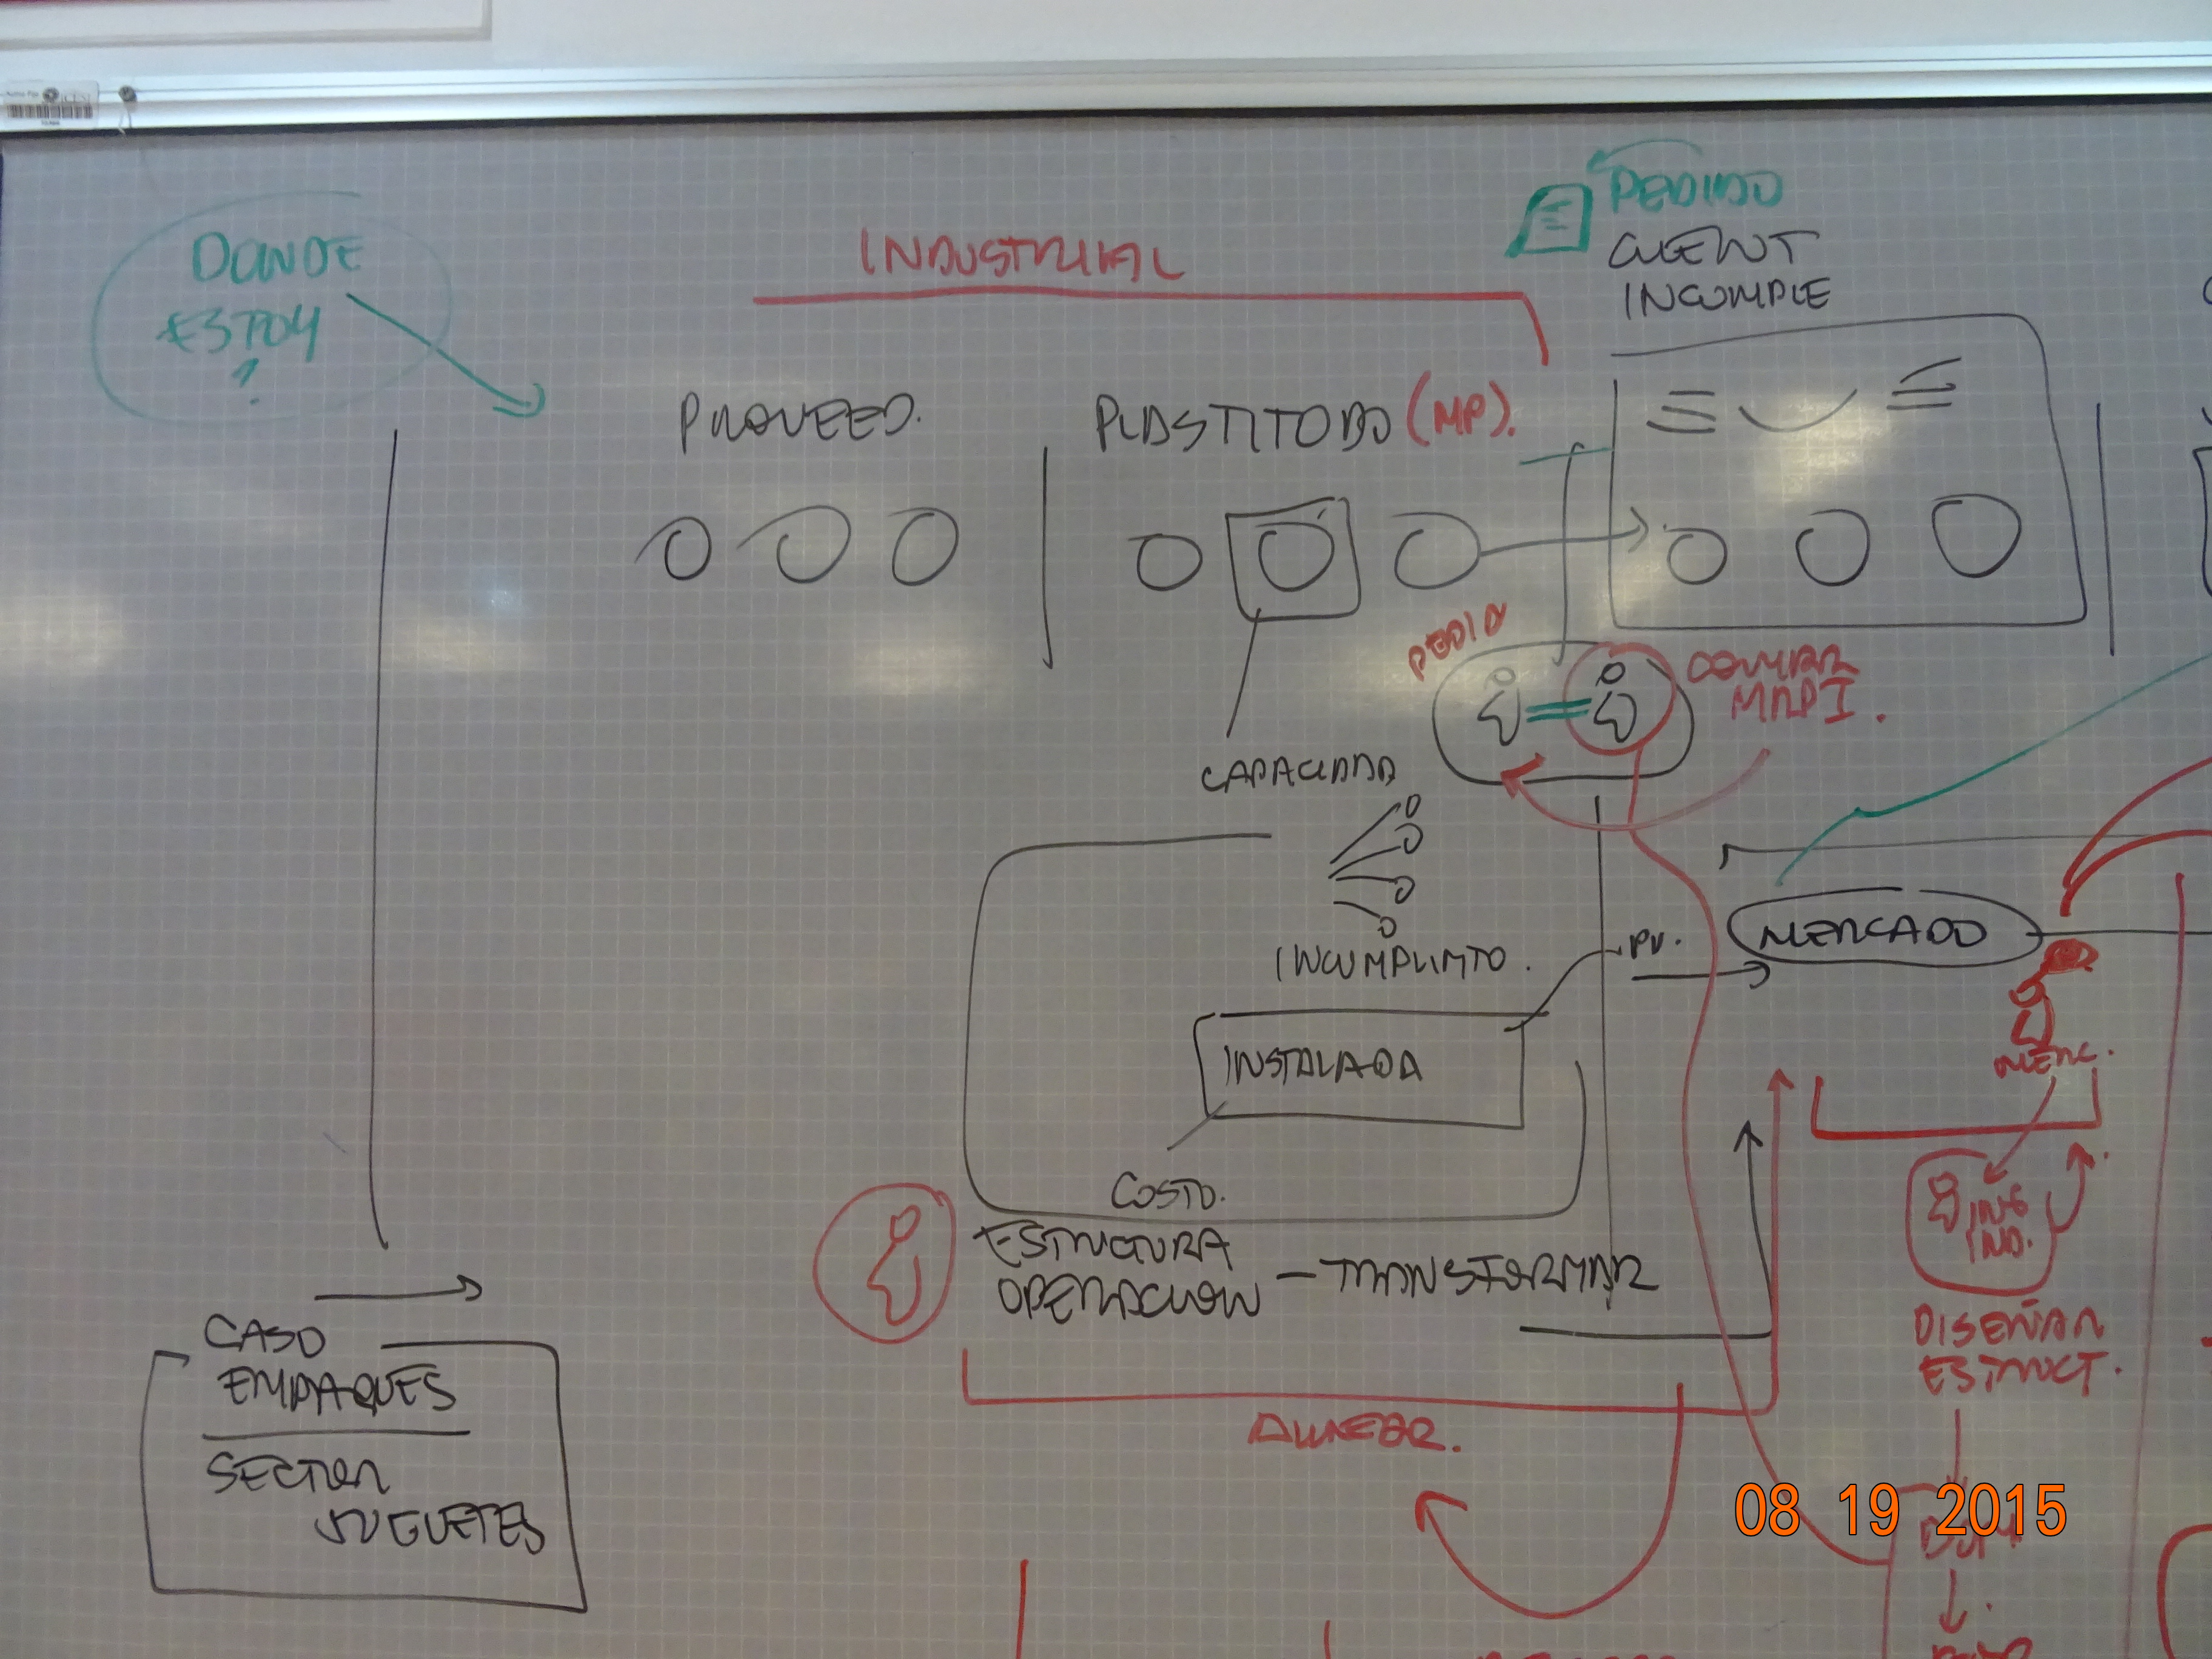 DONDE
ESTOY
?
INDUSTRIAL
PEDIDO
CLIENT
INCUMPLE
PROVEED.
PLASTITODO (MP).
PEDIR
MRP I.
CAPACIDAD
INCUMPLIMTO.
PV.
MERCADO
INSTALADA
MERC.
COSTO.
ESTRUCTURA
OPERACION - TRANSFORMAR
ING
IND.
DISEÑAR
ESTRUCT.
ALINEAR.
CASO
EMPAQUES
SECTOR
JUGUETES
08 19 2015